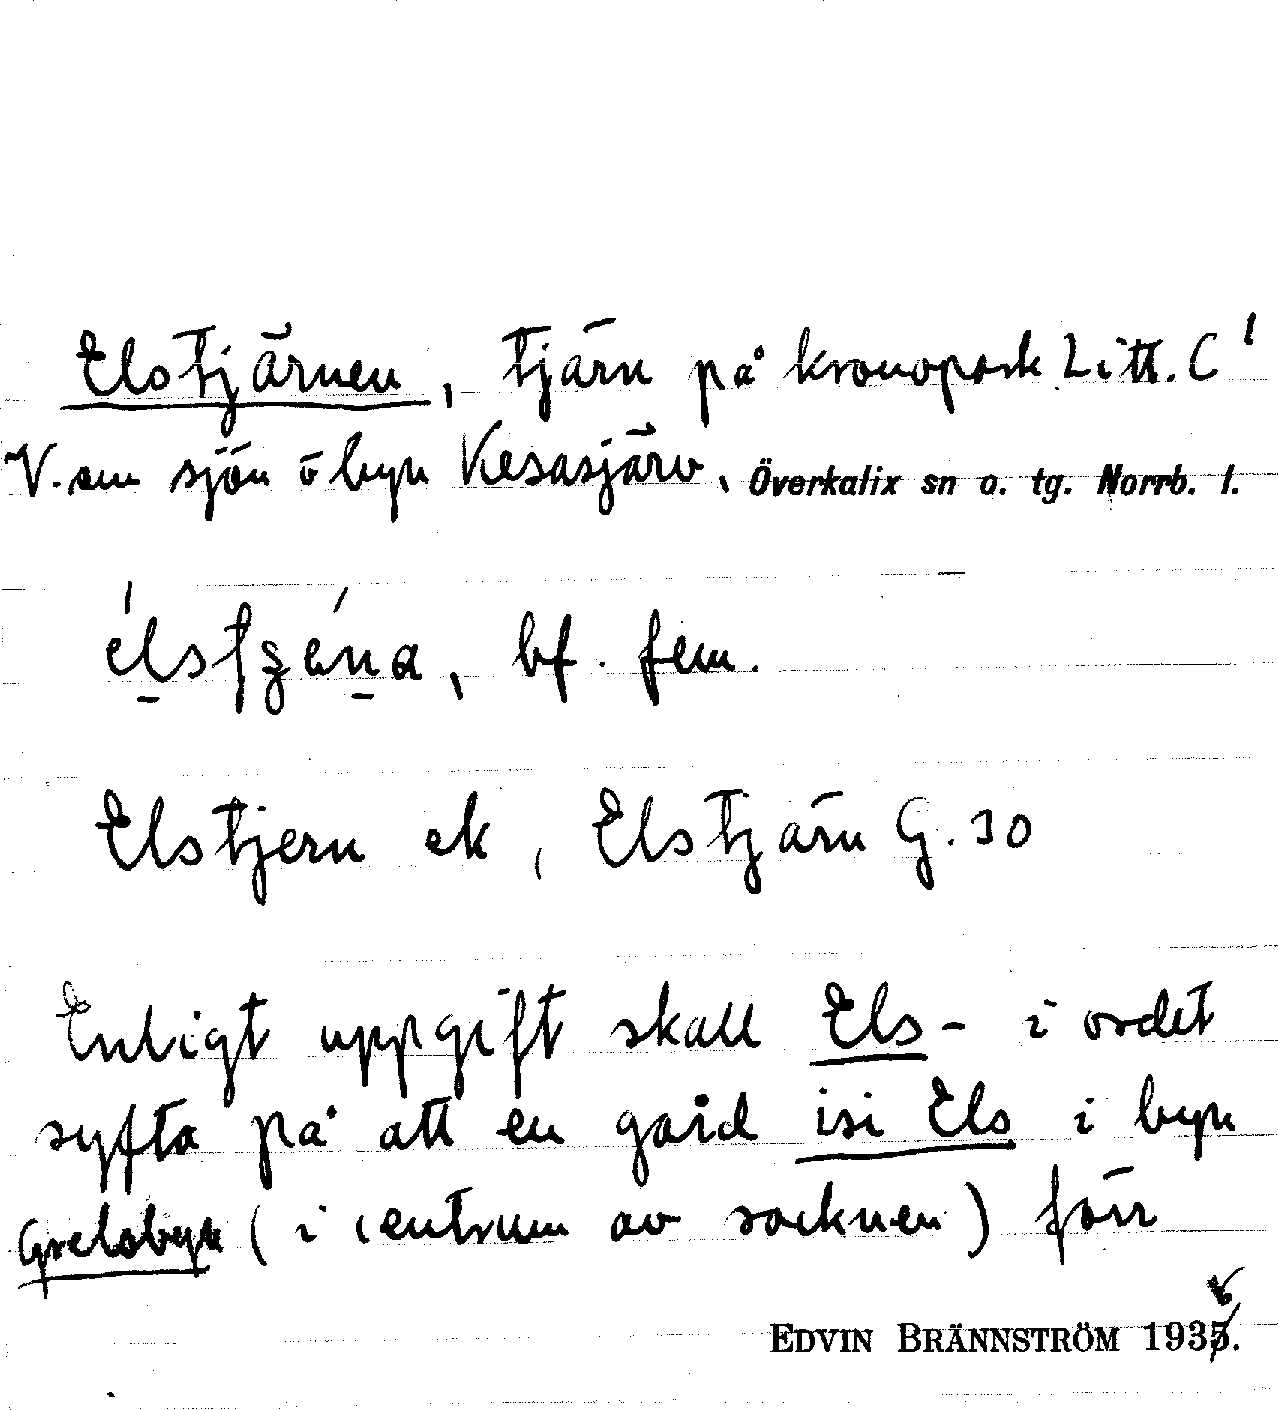 Elstjärnen, tjärn på kronopark Litt. C
V. om sjön o byn Kesasjärv, Överkalix sn o. tg. Norrb. l.
bf. fem.
Elstjern ek, Elstjärn G. 30
Enligt uppgift skall Els- i ordet
syfta på att en gård isi Els i byn
Grelsbyn (i centrum av socknen) förr
EDVIN BRÄNNSTRÖM 1936.